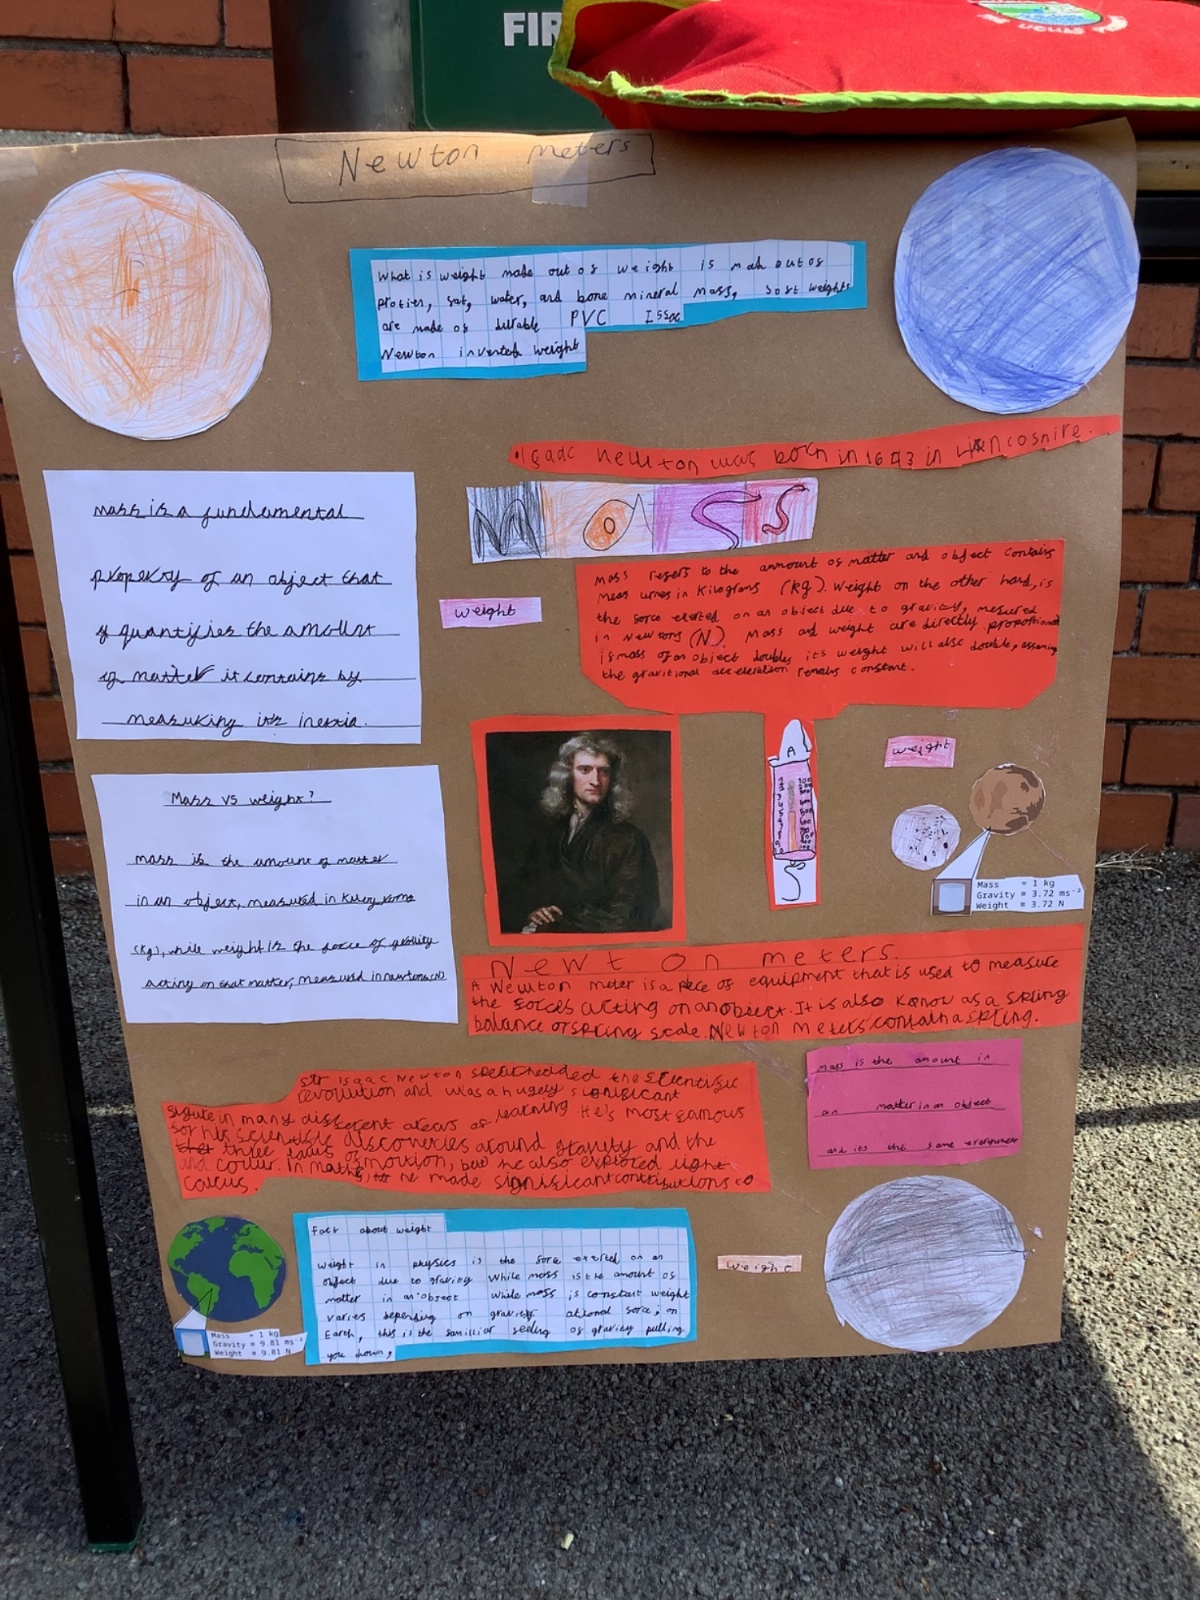 FIR
Newton meters
What is weight made out of weight is mah out of
protien, fat, water, and bone mineral mass, soft weights
are made of durable PVC Issac
Newton invented weight
Isaac newton was born in 1643 in
MaSS
mass is a fundamental
property of an object that
quantifies the amount
of matter it contains by
measuring its inertia.
weight
mass refers to the amount of matter and object contains
measurnes in Kilograms (kg). Weight on the other hand, is
the force exerted on an object due to gravity, mesured
in Newtons (N). Mass and weight are directly proportional
is mass of an object doubles its weight will also double, assuming
the gravitional acceleration remains constant.
Mass vs weight?
mass is the amount of matter
in an object, measured in
(kg), while weight is the force of gravity
acting on that matter, measured in newtons (N)
A
weight
Mass = 1 kg
Gravity = 3.72 ms⁻²
Weight = 3.72 N
Newton meters.
A Newton meter is a piece of equipment that is used to measure
the forces acting on an object. It is also known as a spring
balance or spring scale. Newton meters contain a spring.
Sir Isaac Newton spearheaded the scientific
revolution and was a hugely significant
figure in many different areas of learning He's most famous
for his scientific discoveries around gravity and the
three laws of motion, but he also explored light
and colur. In maths, he made significant contributions to
calcus.
mass is the amount in
an matter in an object
and its the same everywhere
Mass = 1 kg
Gravity = 9.81 ms⁻²
Weight = 9.81 N
Fact about weight
weight in physics is the force exerted on an
object due to graviny while mass is the amount of
matter in an object while mass is constant weight
varies depending on gravity ational force, on
Earth, this is the familliar feeling of gravity pulling
you down,
weight